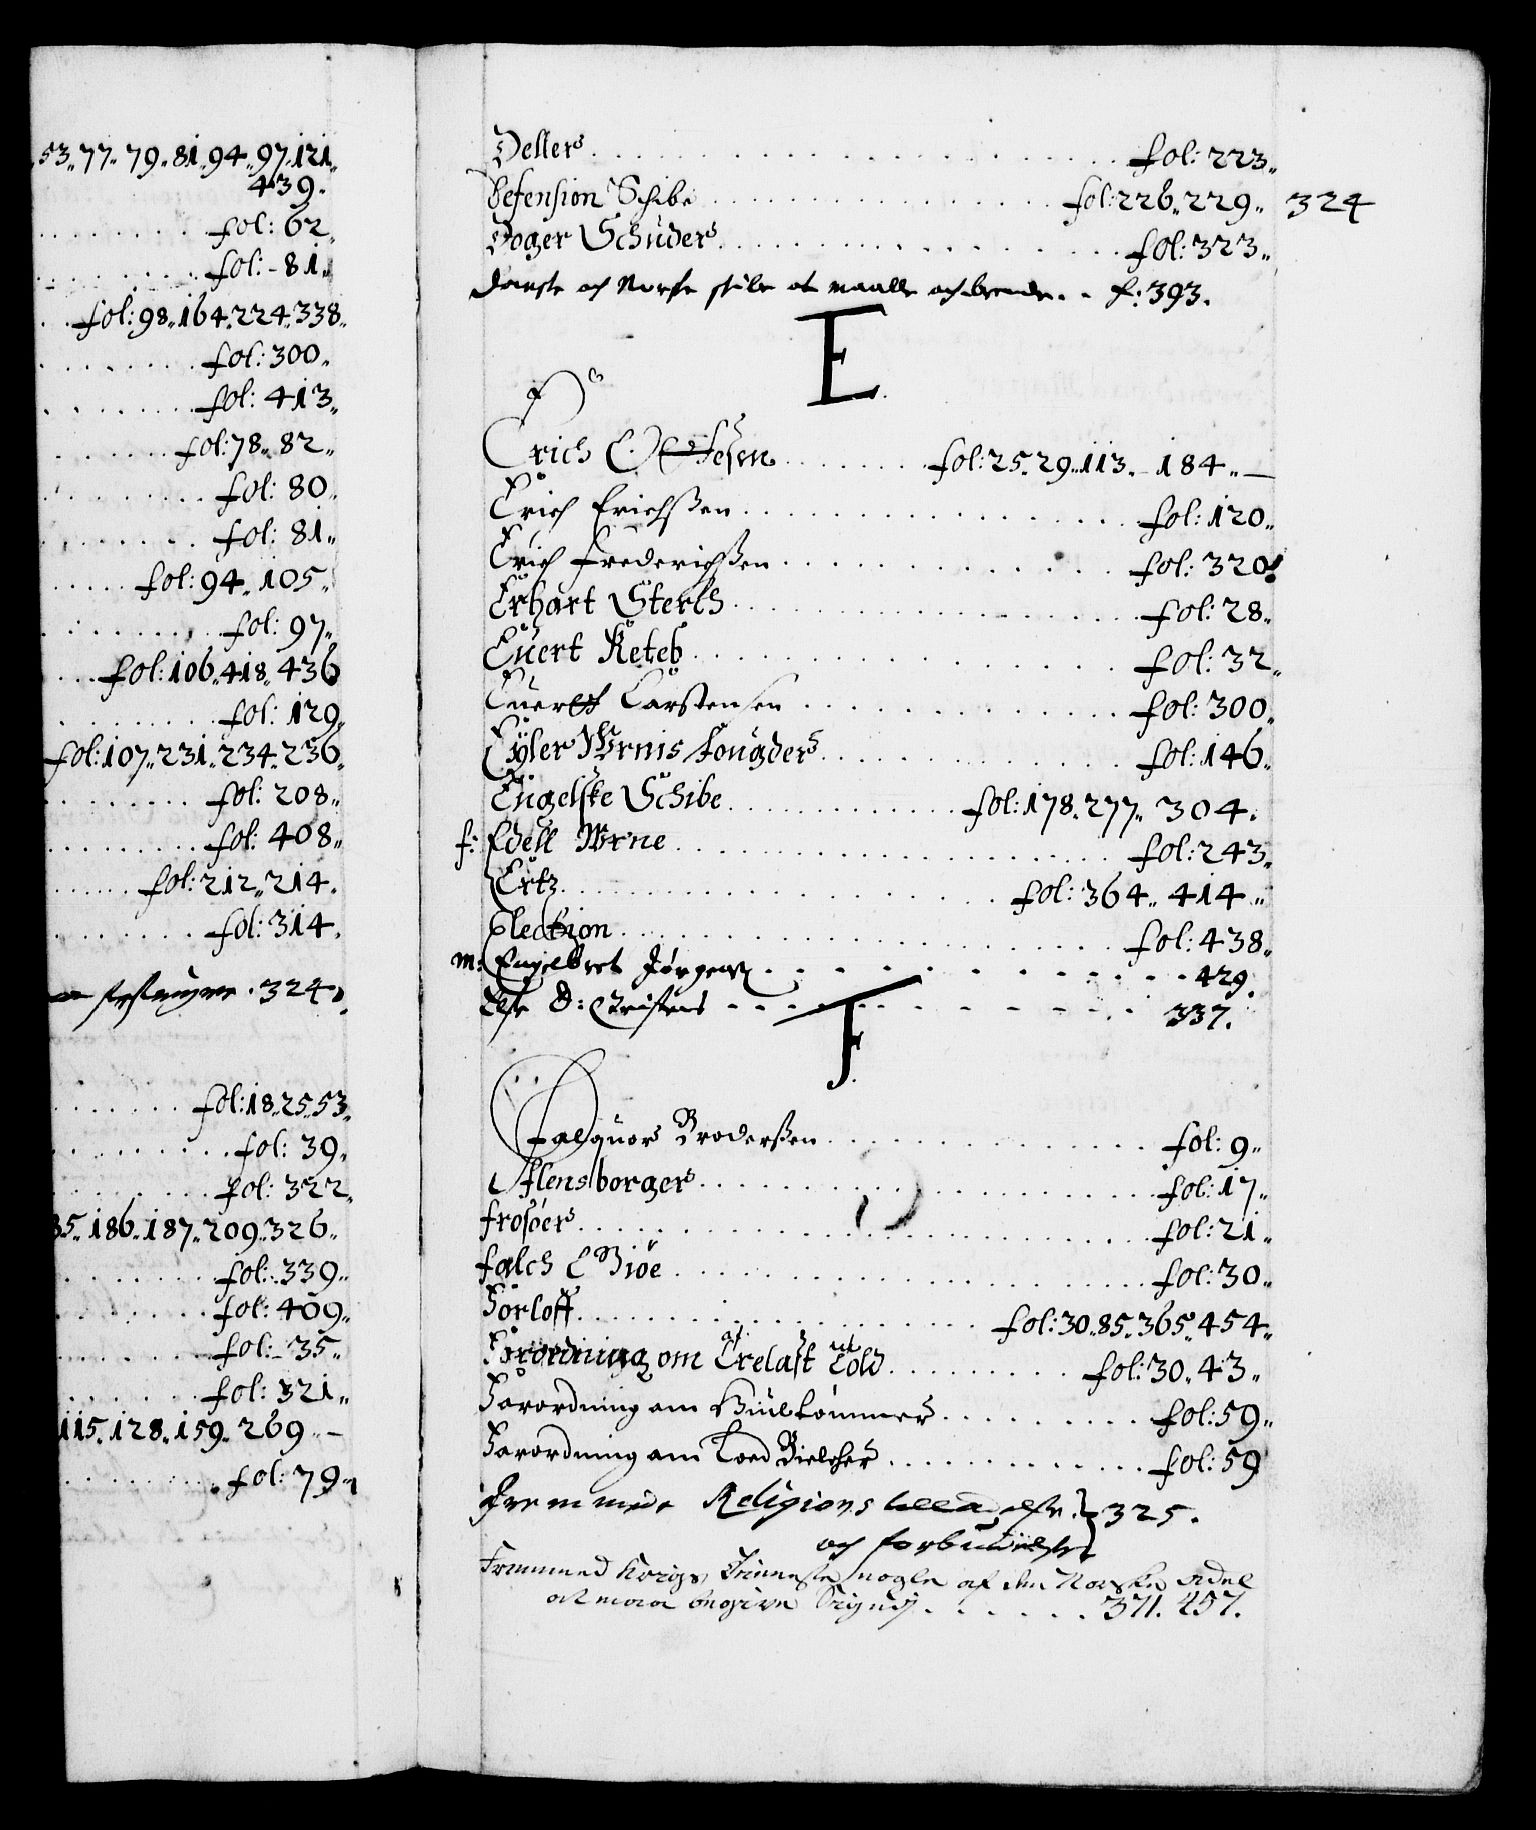 53„ 77„ 79„ 81„ 94„ 97„ 121„
439.
fol: 62„
fol: 81„
fol: 98„ 164„ 224„ 338„
fol: 300„
fol: 413„
fol: 78„ 82„
fol: 80„
fol: 81„
fol: 94„ 105„
fol: 97„
fol: 106„ 418„ 436
fol: 129„
fol: 107„ 231„ 234„ 236„
fol: 208„
fol: 408„
fol: 212„ 214„
fol: 314„
324
fol: 18„ 25„ 53„
fol: 39„
fol: 322„
35„ 186„ 187„ 209„ 326„
fol: 339„
fol: 409„
fol: 35„
fol: 321„
115„ 128„ 159„ 269„ –
fol: 79„
Dellers . . . . . fol: 223„
Defension Schibe . . . . . fol: 226„ 229„ 324
Doger Schüders . . . . . fol: 323„
Danske och Norske at maalle och f: 393.
E
Erich . . . . . fol: 25„ 29„ 113„ – 184„ –
Erich Erichßen . . . . . fol: 120„
Erich Frederichßen . . . . . fol: 320„
Erhart Sterch . . . . . fol: 28„
Euert Keteb . . . . . fol: 32„
Euertt Carstensen . . . . . fol: 300„
Eyler Wrnis fougders . . . . . fol: 146„
Engelske Schibe . . . . . fol: 178„ 277„ 304.
f: Edell Wrne . . . . . fol: 243„
Ertz . . . . . fol: 364„ 414„
Election . . . . . fol: 438„
m: Engelbret Jørgens . . . . . 429.
Else D: Christens . . . . . 337.
F.
Falquors Broderßen . . . . . fol: 9„
Flensborger . . . . . fol: 17„
frosoers . . . . . fol: 21„
falch Giöe . . . . . fol: 30„
Forloff . . . . . fol: 30„ 85„ 365„ 454„
Forordning om Trelast Told . . . . . fol: 30„ 43„
Forordning om . . . . . fol: 59„
Forordning om Bielcher . . . . . fol: 59
Fremmede Religions } 325.
och
Fremmed Kongs Tienneste nogle af den Norske Adel
at maa begive Sig udj . . . . . 371. 457.